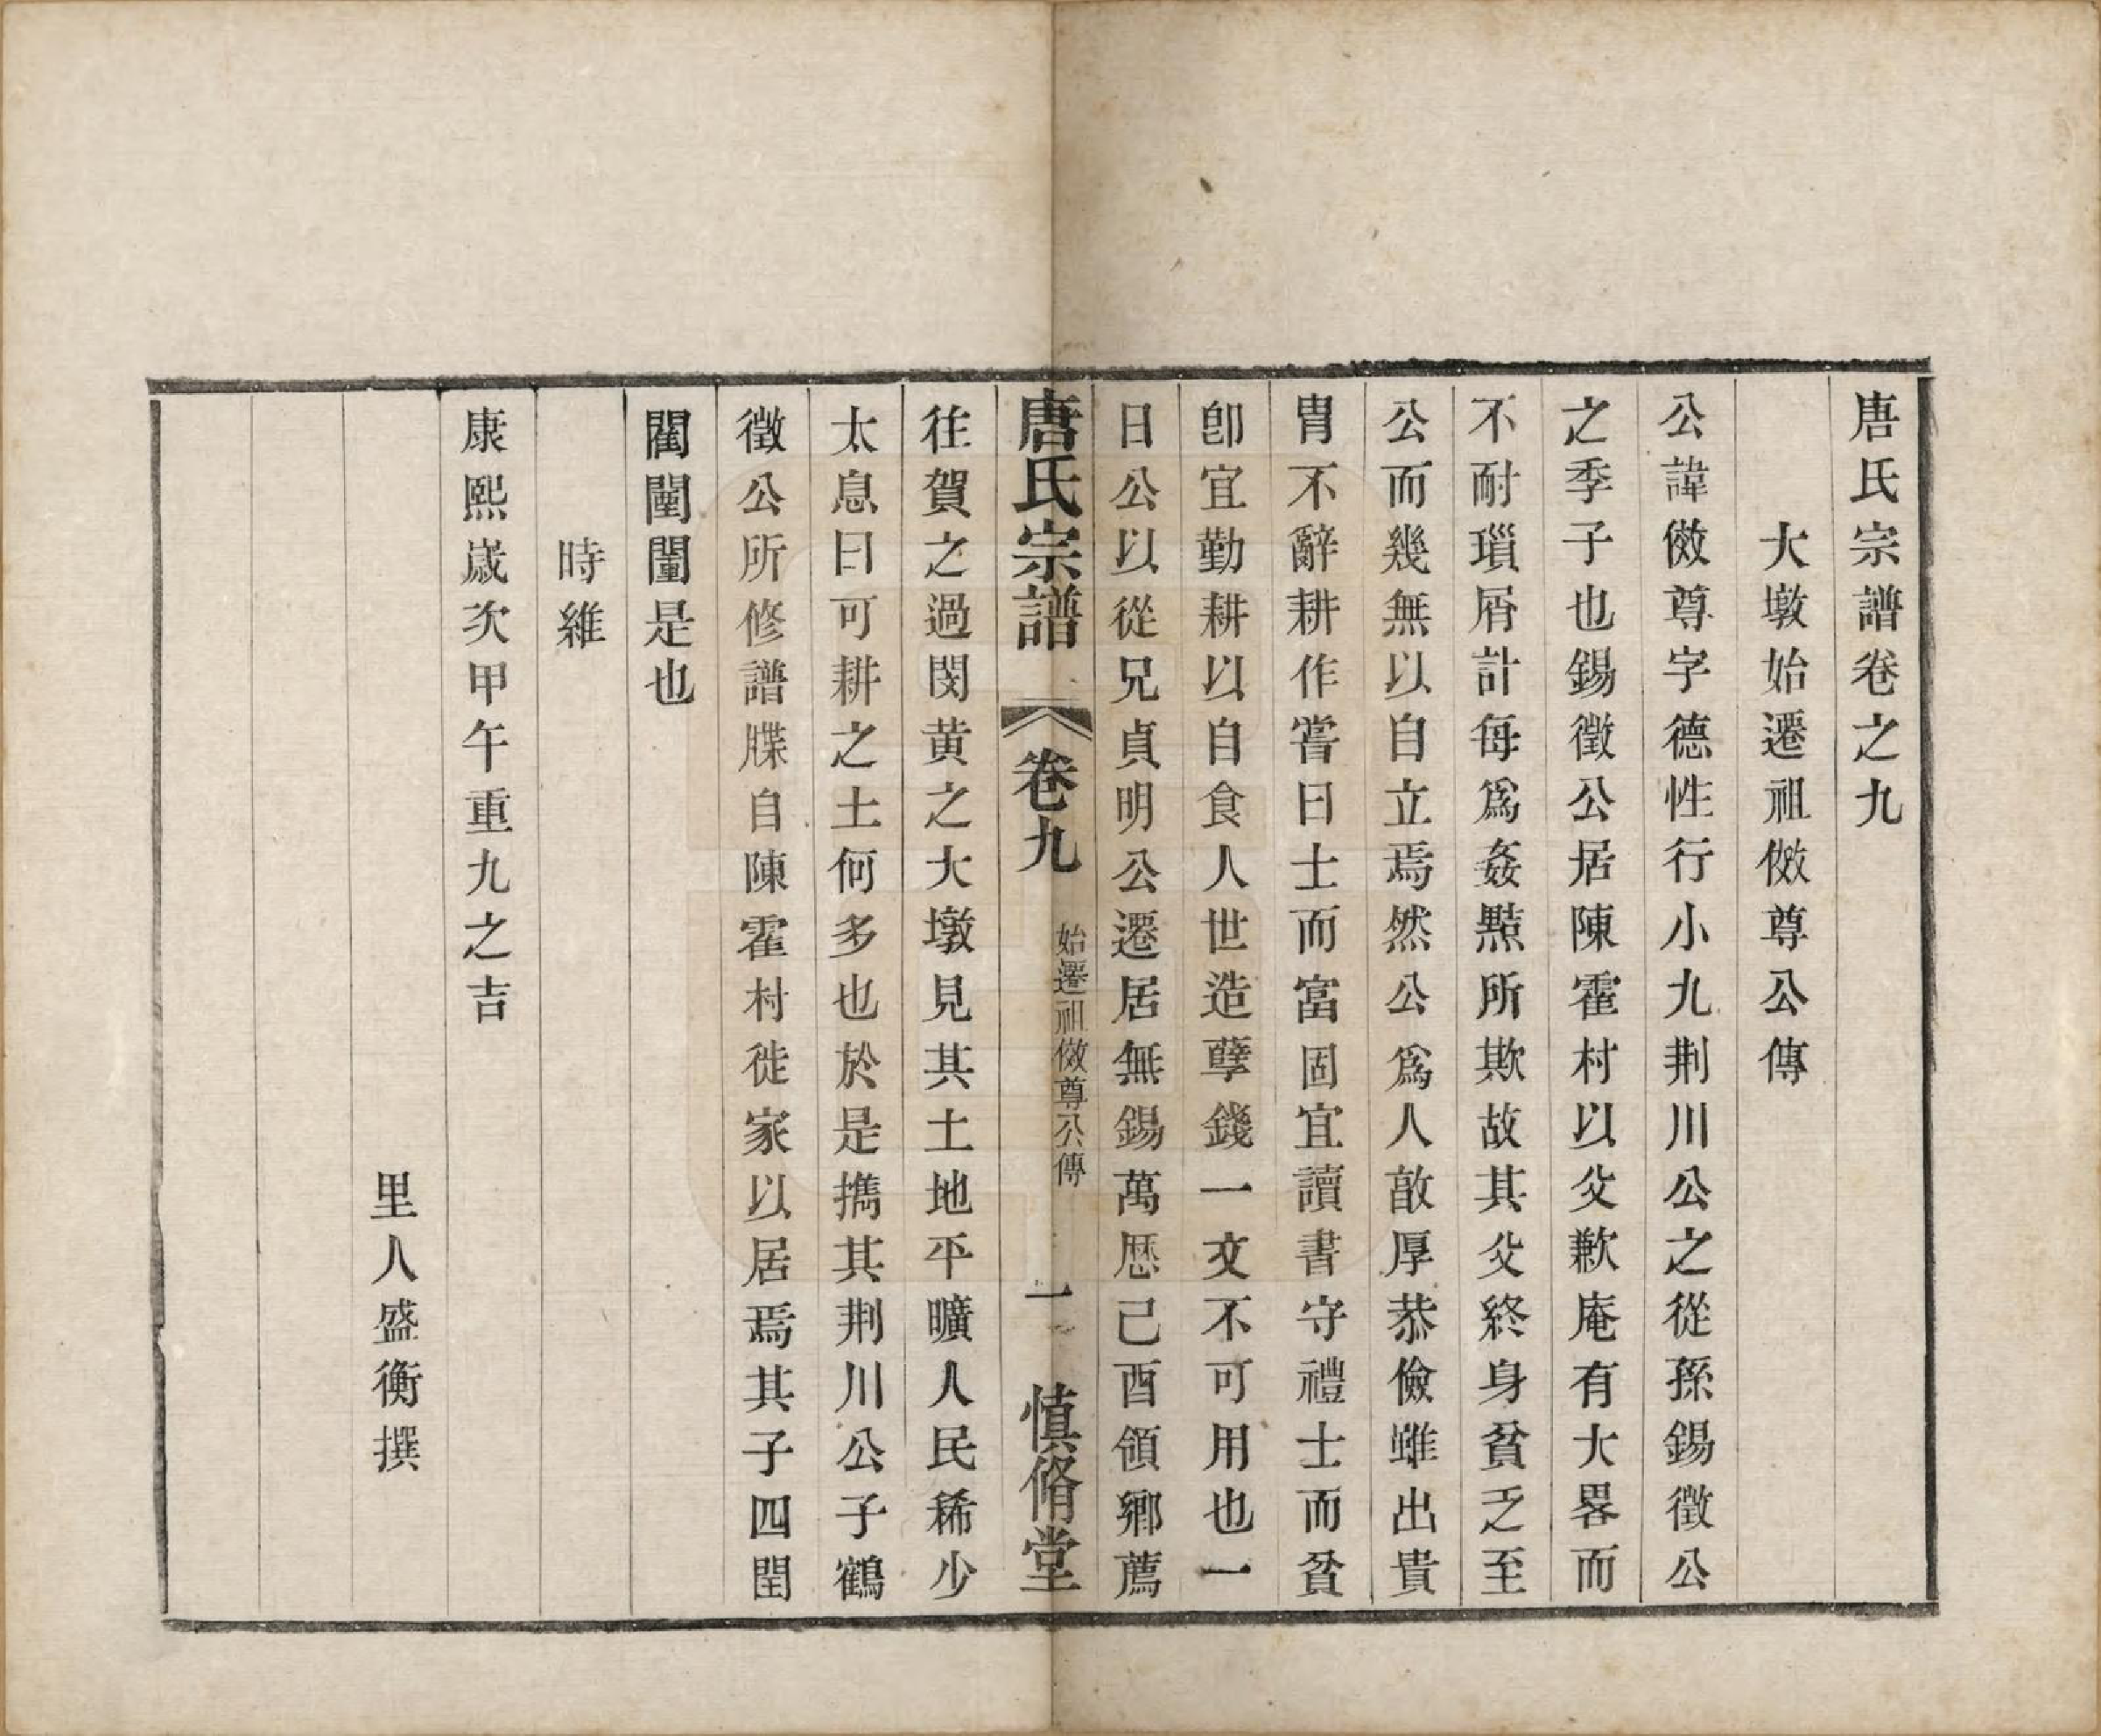 唐氏宗譜卷之九
大墩始遷祖傚尊公傳
公諱傚尊字德性行小九荆川公之從孫錫徵公
之季子也錫徵公居陳霍村以父歉庵有大畧而
不耐瑣屑計每爲姦黠所欺故其父終身貧乏至
公而幾無以自立焉然公爲人敦厚恭儉雖出貴
胄不辭耕作嘗曰士而富固宜讀書守禮士而貧
卽宜勤耕以自食人世造孽錢一文不可用也一
日公以從兄貞明公遷居無錫萬厯己酉領鄉薦
唐氏宗譜
卷九
始遷祖傚尊公傳
一
慎脩堂
往賀之過閔黄之大墩見其土地平曠人民稀少
太息曰可耕之土何多也於是擕其荆川公子鶴
徵公所修譜牒自陳霍村徙家以居焉其子四閏
閣閨闉是也
時維
康熙歲次甲午重九之吉
里人盛衡撰